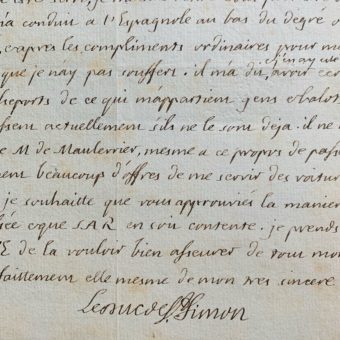 m'a conduit a l'Espagnole au bas du degré
et apres les compliments ordinaires pour m
que je n'ay pas souffert. il m'a du avoir
seports de ce qui m'appartient gens et balots
ssent actuellement s'ils ne le sont deja. il ne
e M de Maulevrier, mesme a ce propos de passe
ent beaucoup d'offres de me servir des voitur
je souhaite que vous approuviés la maniere
iée et que S.A.R. en soit contente. je prends
E de la vouloir bien asseurer de tout mo
faittement elle mesme de mon tres sincere
Le duc de S. Simon